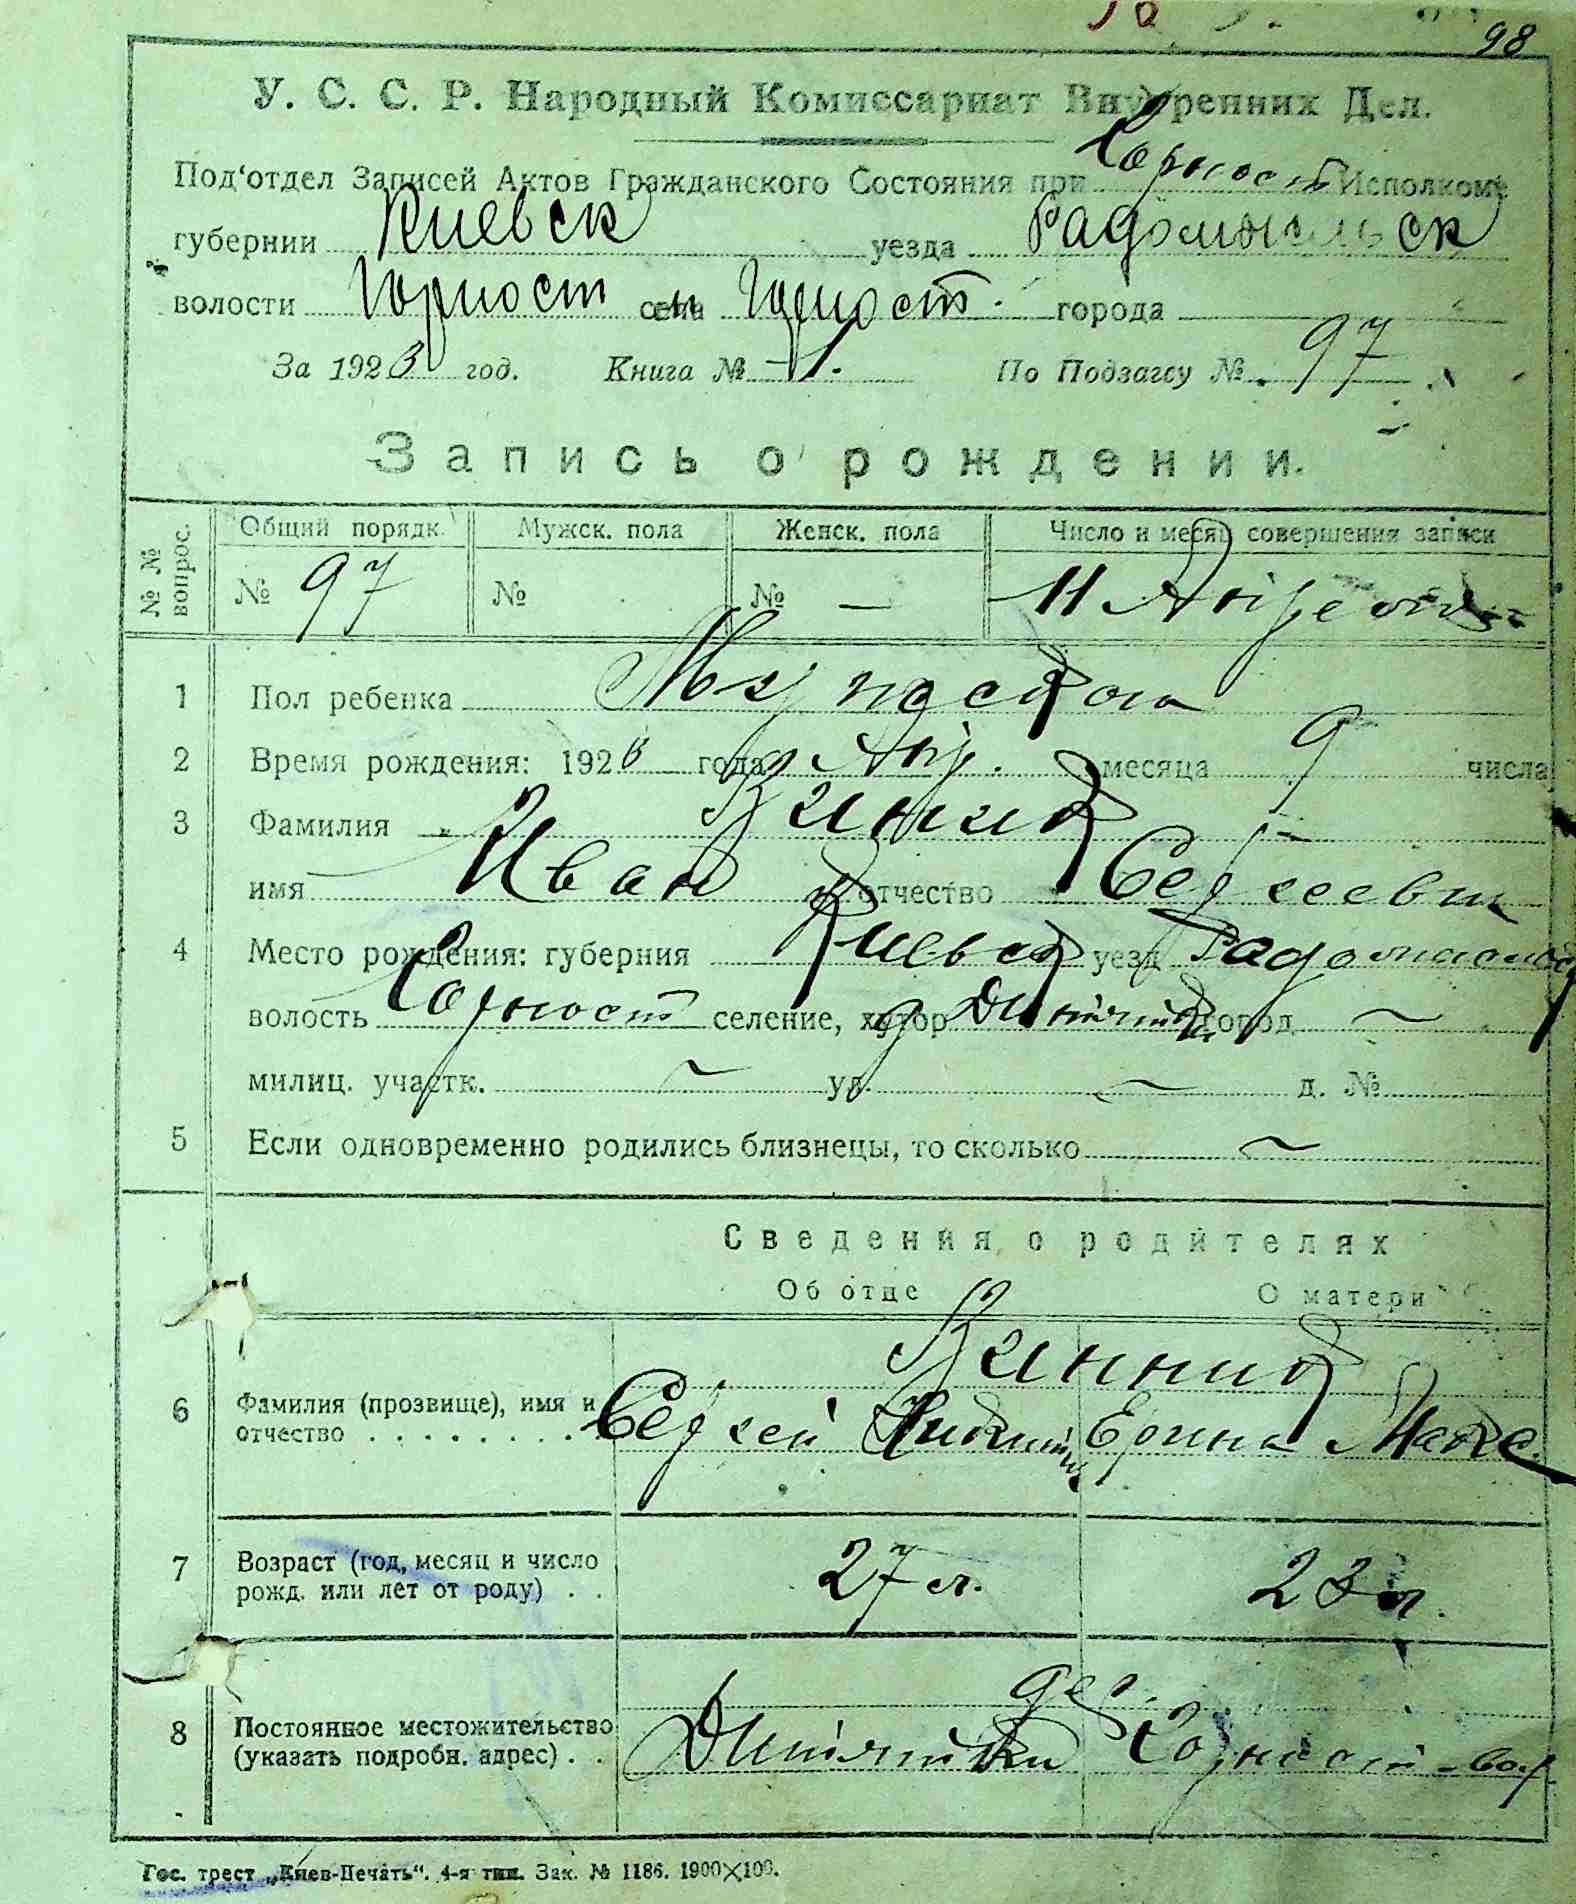 98
У. С. С. Р. Народный Комиссариат Внутренних Дел.
Под'отдел Записей Актов Гражданского Состояния при Горност Исполкоме
губернии Киевск уезда Радомысльск
волости Горност села Горност. города
За 1923 год. Книга № 1. По Подзагсу № 97
Запись о рождении.
№ № вопрос. Общий порядк. Мужск. пола Женск. пола Число и месяц совершения записи
№ 97 № № — 11 Апреля
1 Пол ребенка Мужского
2 Время рождения: 1923 года Апр. месяца 9 числа
3 Фамилия Виник
имя Иван отчество Сергеевич
4 Место рождения: губерния Киевск уезд
волость Горност селение, хутор д Дитятки город ~
милиц. участк. ~ ул. ~ д. №
5 Если одновременно родились близнецы, то сколько ~
Сведения о родителях
Об отце О матери
Винник
6 Фамилия (прозвище), имя и Сергей Никит Ерина Макс
отчество . . . . . . . .
7 Возраст (год, месяц и число 27 л. 23 л.
рожд. или лет от роду) . .
дер.
8 Постоянное местожительство Дитятки Горност вол
(указать подробн. адрес) . .
Гос. трест „Киев-Печать“. 4-я тип. Зак. № 1186. 1900×100.